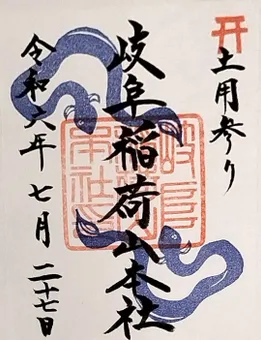 土用参り
岐阜稲荷山本社
令和六年 七月 二十七日